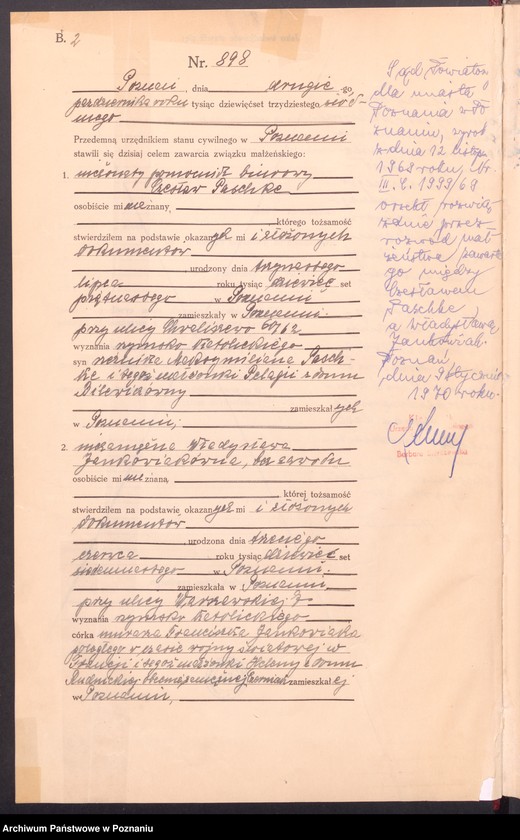 B. 2
Nr. 898
Poznań, dnia drugiego
października roku tysiąc dziewięćset trzydziestego siód-
mego
Przedemą urzędnikiem stanu cywilnego w Poznaniu
stawili się dzisiaj celem zawarcia związku małżeńskiego:
1. nieżonaty pomocnik biurowy
Czesław Paschke
osobiście mi nieznany,
którego tożsamość
stwierdziłem na podstawie okazanych mi i złożonych
dokumentów
, urodzony dnia
lipca roku tysiąc dziewięć set
piętnastego w Poznaniu
, zamieszkały w Poznaniu
przy ulicy Chwaliszewo 61/62
wyznania rzymsko katolickiego
syn Maksymiliana Pasch-
ke i tegoż małżonki Pelagii z domu
zamieszkałych
w Poznaniu;
2. niezamężna Władysława
Jankowiakówna, bez zawodu
osobiście mi nieznana,
, której tożsamość
stwierdziłem na podstawie okazanych mi i złożonych
dokumentów
, urodzona dnia trzeciego
czerwca roku tysiąc dziewięć set
siedemnastego w Poznaniu
, zamieszkała w Poznaniu
przy ulicy
wyznania rzymsko katolickiego
córka murarza Franciszka Jankowiaka
poległego w czasie wojny światowej w
Francji i tegoż małżonki Heleny z domu
zamieszkałej
w Poznaniu,
Sąd Powiatowy
dla miasta
Poznania w Po-
znaniu, wyrok
z dnia 12 listop.
1969 roku, Nr.
III. C. 1999/69
orzekł rozwią-
zanie przez
rozwód mał-
żeństwa zawarte-
go między
Czesławem
Paschke,
a Władysławą
Jankowiak.
Poznań,
dnia 9 stycznia
1970 roku.
Archiwum Państwowe w Poznaniu